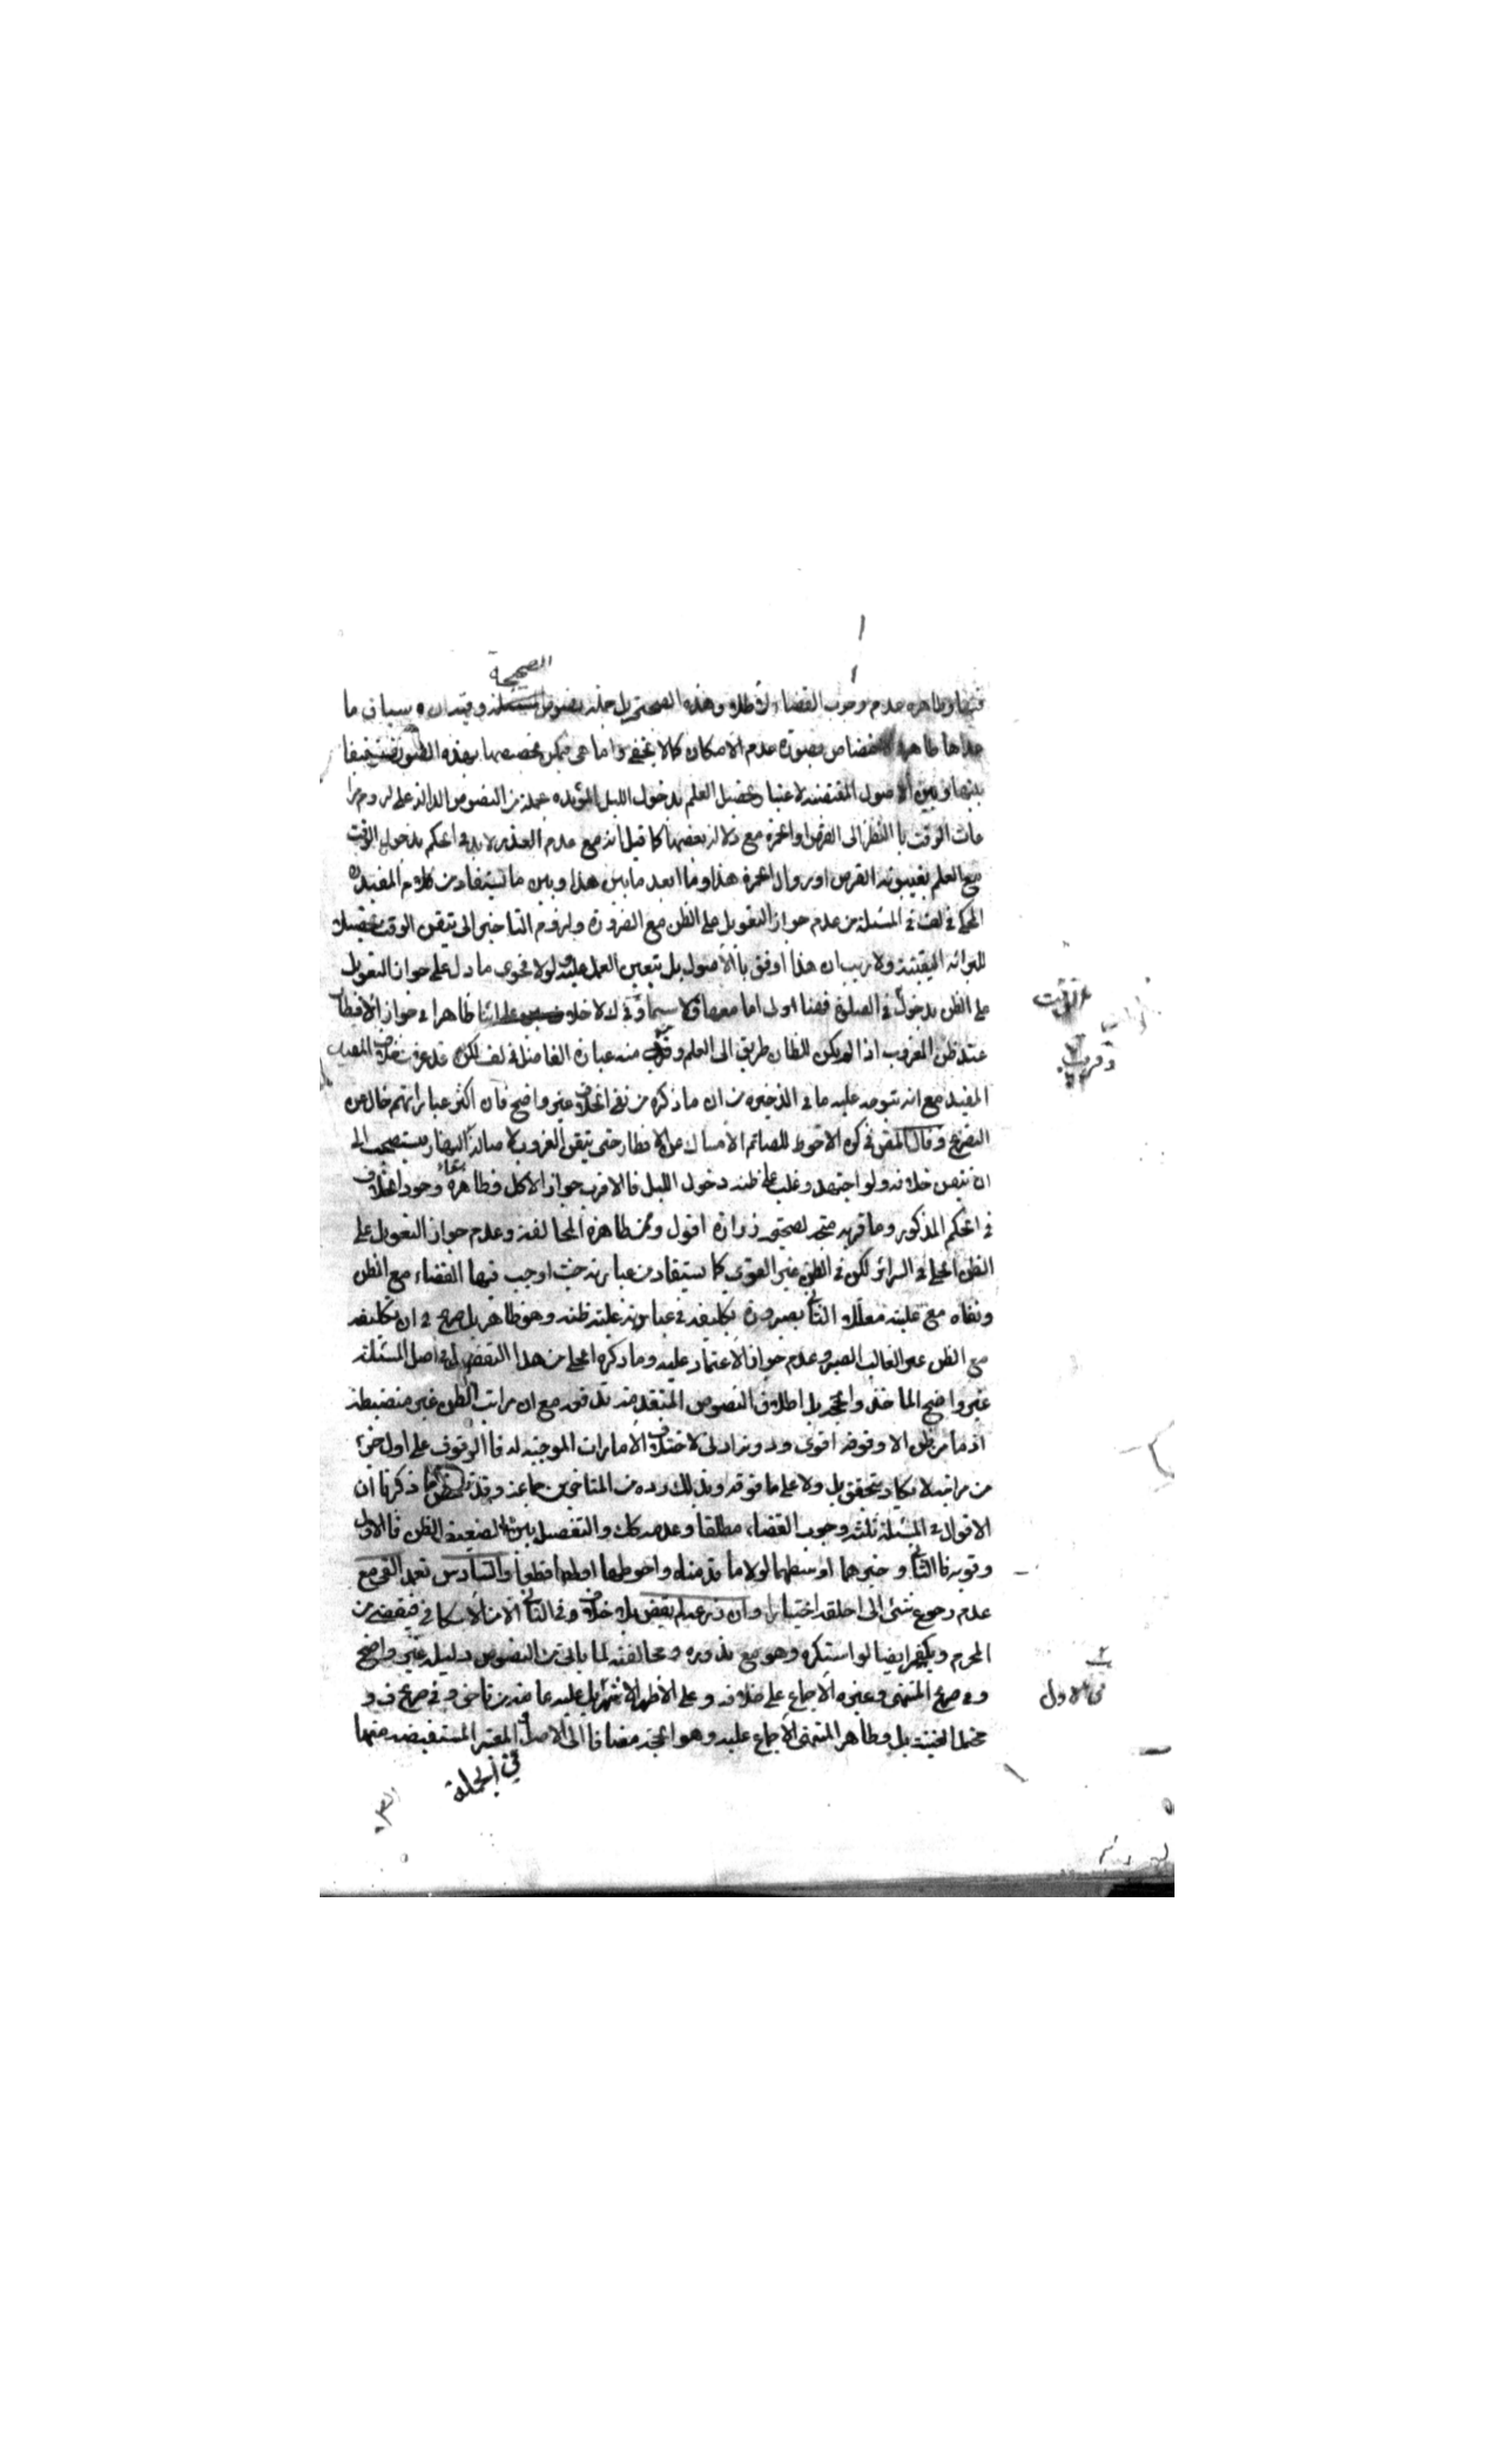 الصحيحة
فيها وظاهره عدم وجوب القضاء وهذه الصحيحة بل جملة نصوص وقيدان سياق ما
عداها ظاهر الاختصاص بصورة عدم الامكان كما لا يخفى واما هي فيمكن تخصيصها بهذه الصورة
بينها وبين الاصول المقتضية لاعتبار تحصيل العلم بدخول الليل المؤيدة بجملة من النصوص الدالة على لزوم مرا
عات الوقت بالنظر الى القرص او الحمرة مع دلالة بعضها كما قيل انه مع عدم العذر لا بد في الحكم بدخول الوقت
مع العلم بغيبوبة القرص او زوال الحمرة هذا وما ابعد ما بين هذا وبين ما يستفاد من كلام المفيد ره
المحكي في لف في المسئلة من عدم جواز التعويل على الظن مع الضرورة ولزوم التاخير الى تيقن الوقت تحصيلا
للبرائة اليقينية ولا ريب ان هذا اوفق بالاصول بل يتعين العمل عليه لولا فحوى ما دل على جواز التعويل
على الظن بدخول في الصلوة فهنا اولى اما معها فلا سيما وفي لا خلاف علمائنا ظاهرا في جواز الافطار
عند ظن الغروب اذا لم يكن للظان طريق الى العلم وقريب منه عبارة الفاضل في لف لكن قد عرفت خلاف
المفيد مع انه يتوجه عليه ما في الذخيرة من ان ما ذكره من نفي الخلاف غير واضح فان اكثر عباراتهم خال عن
التصريح وقال في كره الاحوط للصائم الامساك عن الافطار حتى يتيقن الغروب لاصالة النهار فيستصحب الى
ان يتيقن خلافه ولو اجتهد وغلب على ظنه دخول الليل فالاقرب جواز الاكل وظاهره وجود الخلاف
في الحكم المذكور وما قربه متجه لصحيحة زرارة اقول وممن ظاهره المخالفة وعدم جواز التعويل على
الظن الحلي في السرائر لكن في الظن غير القوي كما يستفاد من عبارته حيث اوجب فيها القضاء مع الظن
ونفاه مع غلبته معللا الثاني بصيرورة تكليفه في عبادته غلبة ظنه وهو ظاهر بل صريح في ان تكليفه
مع الظن غير الغالب الصبر وعدم جواز الاعتماد عليه وما ذكره الحلي من هذا التفضيل في اصل المسئلة
غير واضح الماخذ والحجة بل اطلاق النصوص المتقدمة تدفعه مع ان مراتب الظن غير منضبطة
اذ ما من ظن الا وفوقه اقوى ودونه ادنى لاختلاف الامارات الموجبة له فالوقوف على اول جزء
من مراتبه لا يكاد يتحقق بل ولا على ما فوقه وبذلك رده من المتاخرين جماعة وقد تلخص مما ذكرنا ان
الاقوال في المسئلة ثلثة وجوب القضاء مطلقا وعدمه كك والتفصيل بين الظن فالاول
وقوية فالثاني وخيرها اوسطها لولا ما قدمناه واحوطها اولها قطعا والسادس تعمد القي مع
عدم رجوع شئ الى حلقه اختيارا وان ذرعه لم يقض بلا خلاف وفي الثاني الا من الاسكافي فيقضي من
المحرم ويكفر ايضا لو استكره وهو مع ندوره ومخالفته لما ياتي من النصوص دليله غير واضح
وفي صريح المنتهى وغيره الاجماع على خلافه وعلى الاظهر الاشهر بل عليه عامة من تاخر وفي صريح ف و
محتمل الغنية بل وظاهر المنتهى الاجماع عليه وهو الحجة مضافا الى الاصل المعتبرة المستفيضة منها
في الجملة
في الاول